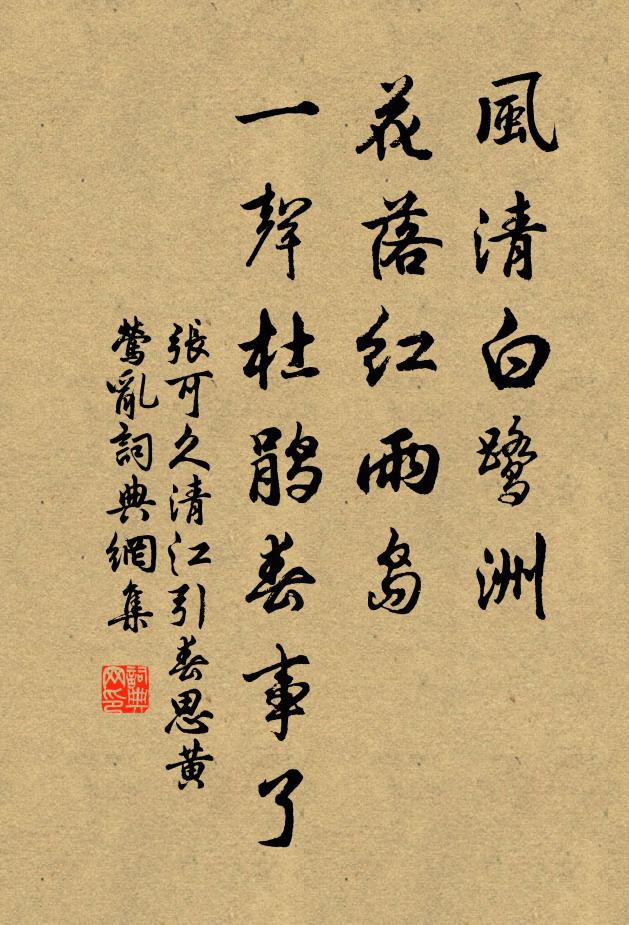 風清白鷺洲
花落紅雨島
一聲杜鵑春事了
張可久清江引春思黃
鶯亂詞典網集
詞典网印